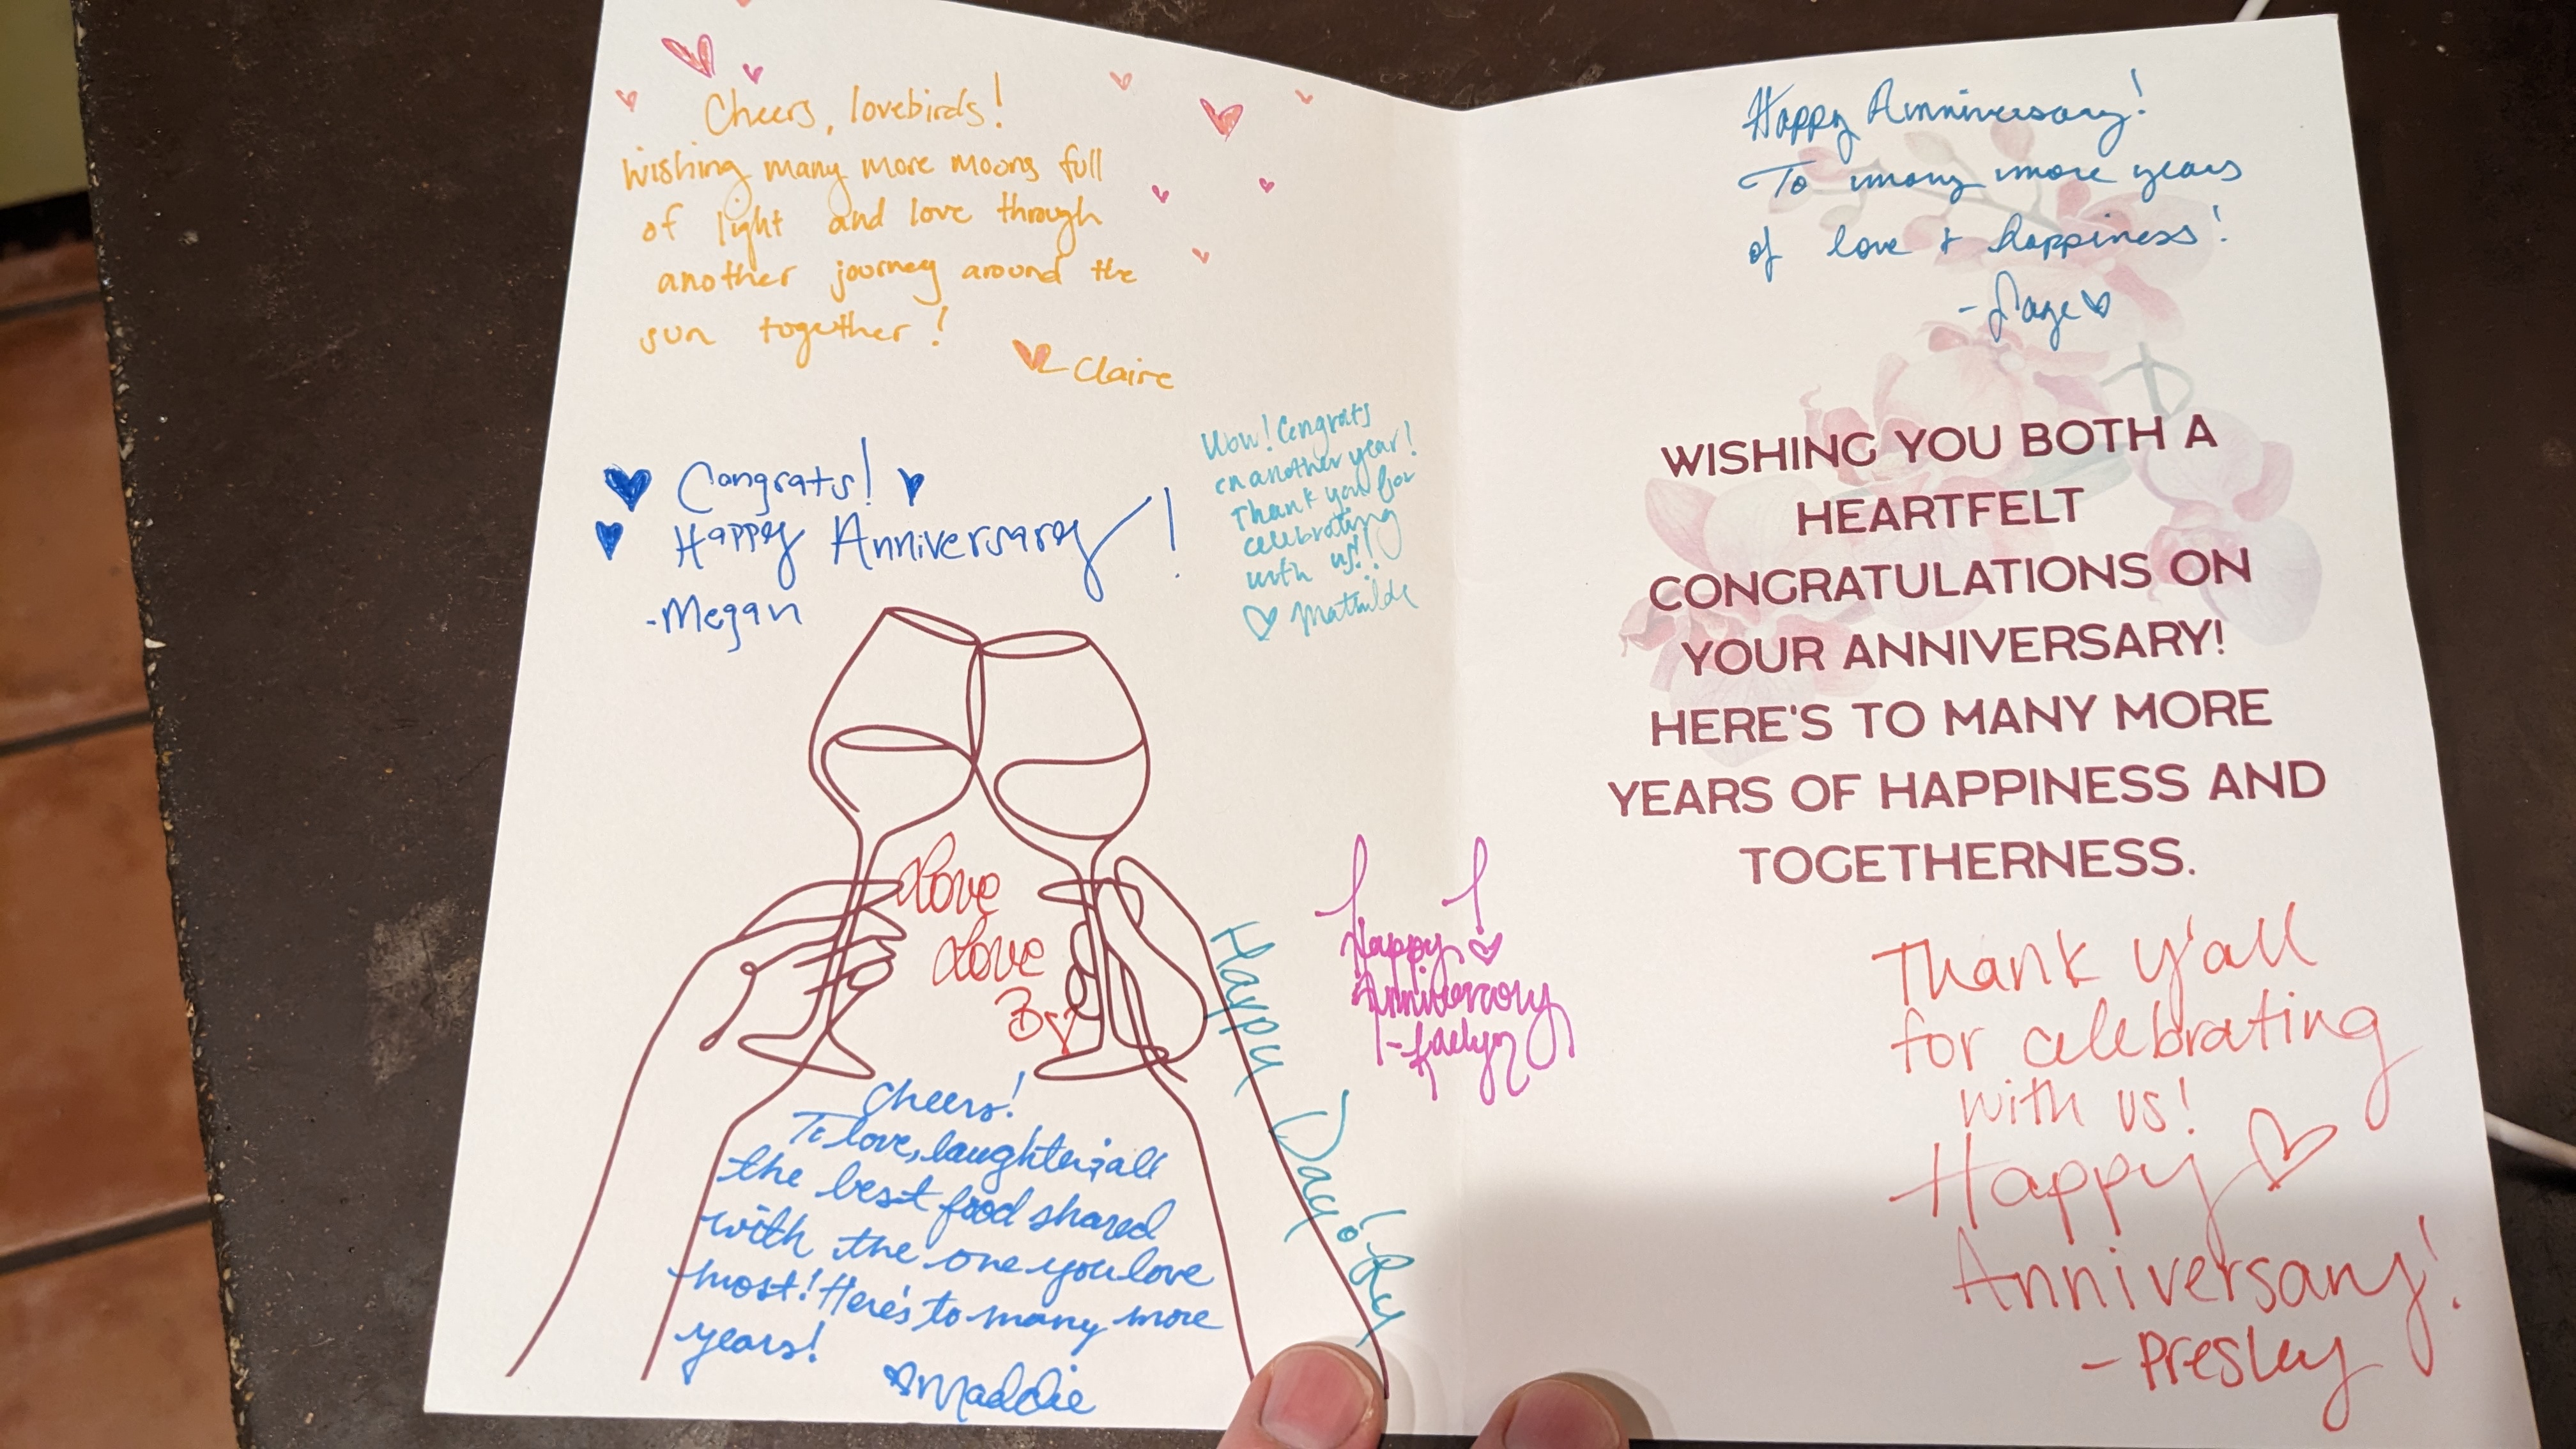 Cheers, lovebirds!
Wishing many more moons full
of light and love through
another journey around the
sun together!
Claire
Congrats!
Happy Anniversary!
-Megan
Wow! Congrats
on another year!
Thank you for
celebrating
with us!!
Mathilde
Love
Love
B
Happy Day!
Happy
Anniversary
-Kaelyn
Cheers!
To love, laughter, & all
the best food shared
with the one you love
most! Here's to many more
years!
Maddie
Happy Anniversary!
To many more years
of love + happiness!
WISHING YOU BOTH A
HEARTFELT
CONGRATULATIONS ON
YOUR ANNIVERSARY!
HERE'S TO MANY MORE
YEARS OF HAPPINESS AND
TOGETHERNESS.
Thank y'all
for celebrating
with us!
Happy
Anniversary!
- Presley